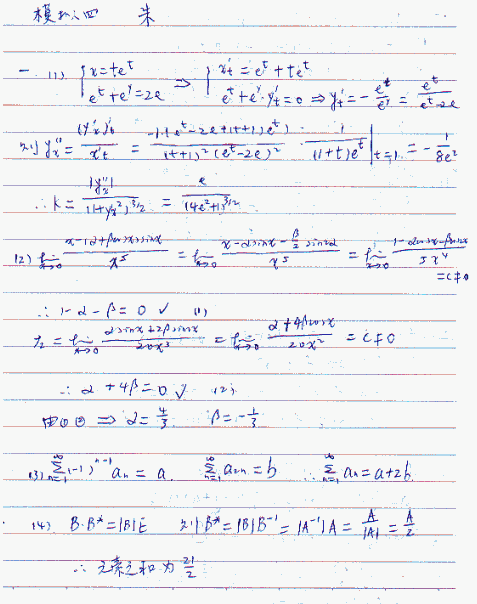 模拟四 朱
一. (1) { x=te^t  e^t+e^y=2e ⇒ { x't=e^t+te^t  e^t+e^y·y't=0 ⇒ y't=-e^t/e^y=e^t/(e^t-2e)
则 y''x=(y'x)'t/x't=-1·(e^t-2e+(1+t)e^t)/((1+t)^2(e^t-2e)^2)·1/((1+t)e^t)|t=1=-1/(8e^2)
∴ k=|y''x|/(1+y'x^2)^(3/2)=e/(4e^2+1)^(3/2)
(2) lim x→0 (x-(α+βcosx)sinx)/x^5=lim x→0 (x-αsinx-β/2 sin2x)/x^5=lim x→0 (1-αcosx-βcos2x)/5x^4
=c≠0
∴ 1-α-β=0 ✓ (1)
lim x→0 (αsinx+2βsin2x)/20x^3=lim x→0 (α+4βcosx)/20x^2=c≠0
∴ α+4β=0 ✓ (2)
由①② ⇒ α=4/3 β=-1/3
(3) ∑ n=1 ∞ (-1)^(n-1) an=a. ∑ n=1 ∞ a2n=b ∴ ∑ n=1 ∞ an=a+2b.
(4) B·B*=|B|E 则 B*=|B|B^-1=|A^-1|A=A/|A|=A/2
∴ 元素之和为 21/2